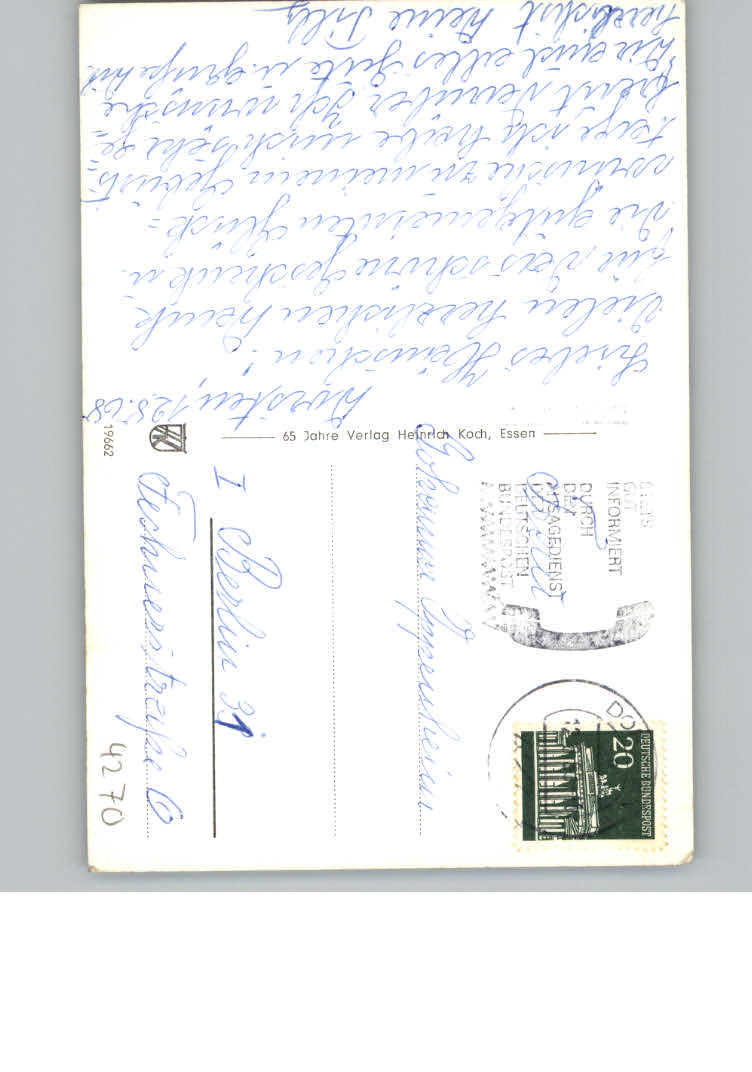 Dorsten, 12.5.68
Liebes Hänschen!
Vielen herzlichen Dank
für das schöne Geschenk u.
die gutgemeinten Glück=
wünsche zu meinem Geburts=
tage, ich habe mich sehr ge=
freut darüber. Ich wünsche
Dir auch alles Gute u. grüße Dich
herzlichst Deine Tilly
65 Jahre Verlag Heinrich Koch, Essen
19662
STETS
GUT
INFORMIERT
DURCH
DEN
ANSAGEDIENST
DER
DEUTSCHEN
BUNDESPOST
DO
20
DEUTSCHE BUNDESPOST
Johanna Oppenheim
I Berlin 31
Fechnerstraße 6
4270